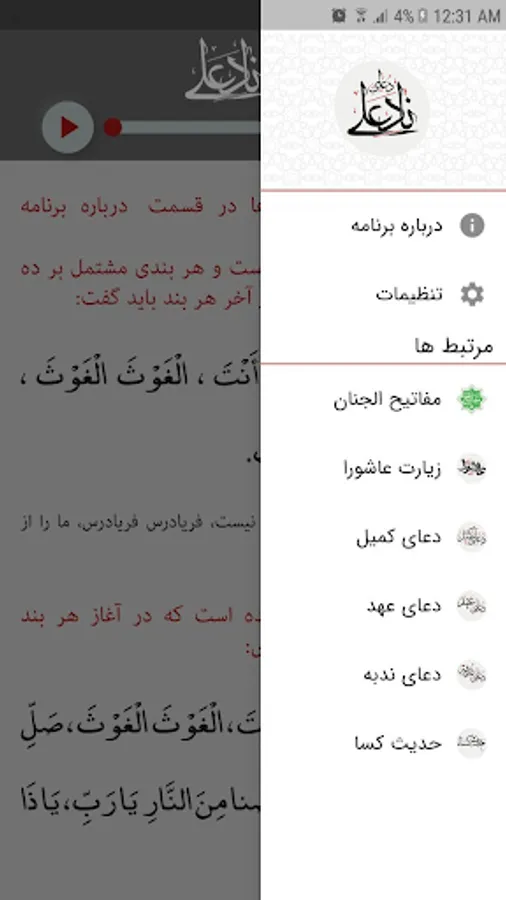 4% 12:31 AM
دعای
نادعلی
درباره برنامه
تنظیمات
مرتبط ها
مفاتیح الجنان
زیارت عاشورا
دعای کمیل
دعای عهد
دعای ندبه
حدیث کسا
نادعلی
ها در قسمت درباره برنامه
ست و هر بندی مشتمل بر ده
آخر هر بند باید گفت:
أَنْتَ ، الْغَوْثَ الْغَوْثَ ،
نیست، فریادرس فریادرس، ما را از
ده است که در آغاز هر بند
تَ،الْغَوْثَ الْغَوْثَ،صَلِّ
مِنَ النَّارِ يَارَبِّ،يَاذَا